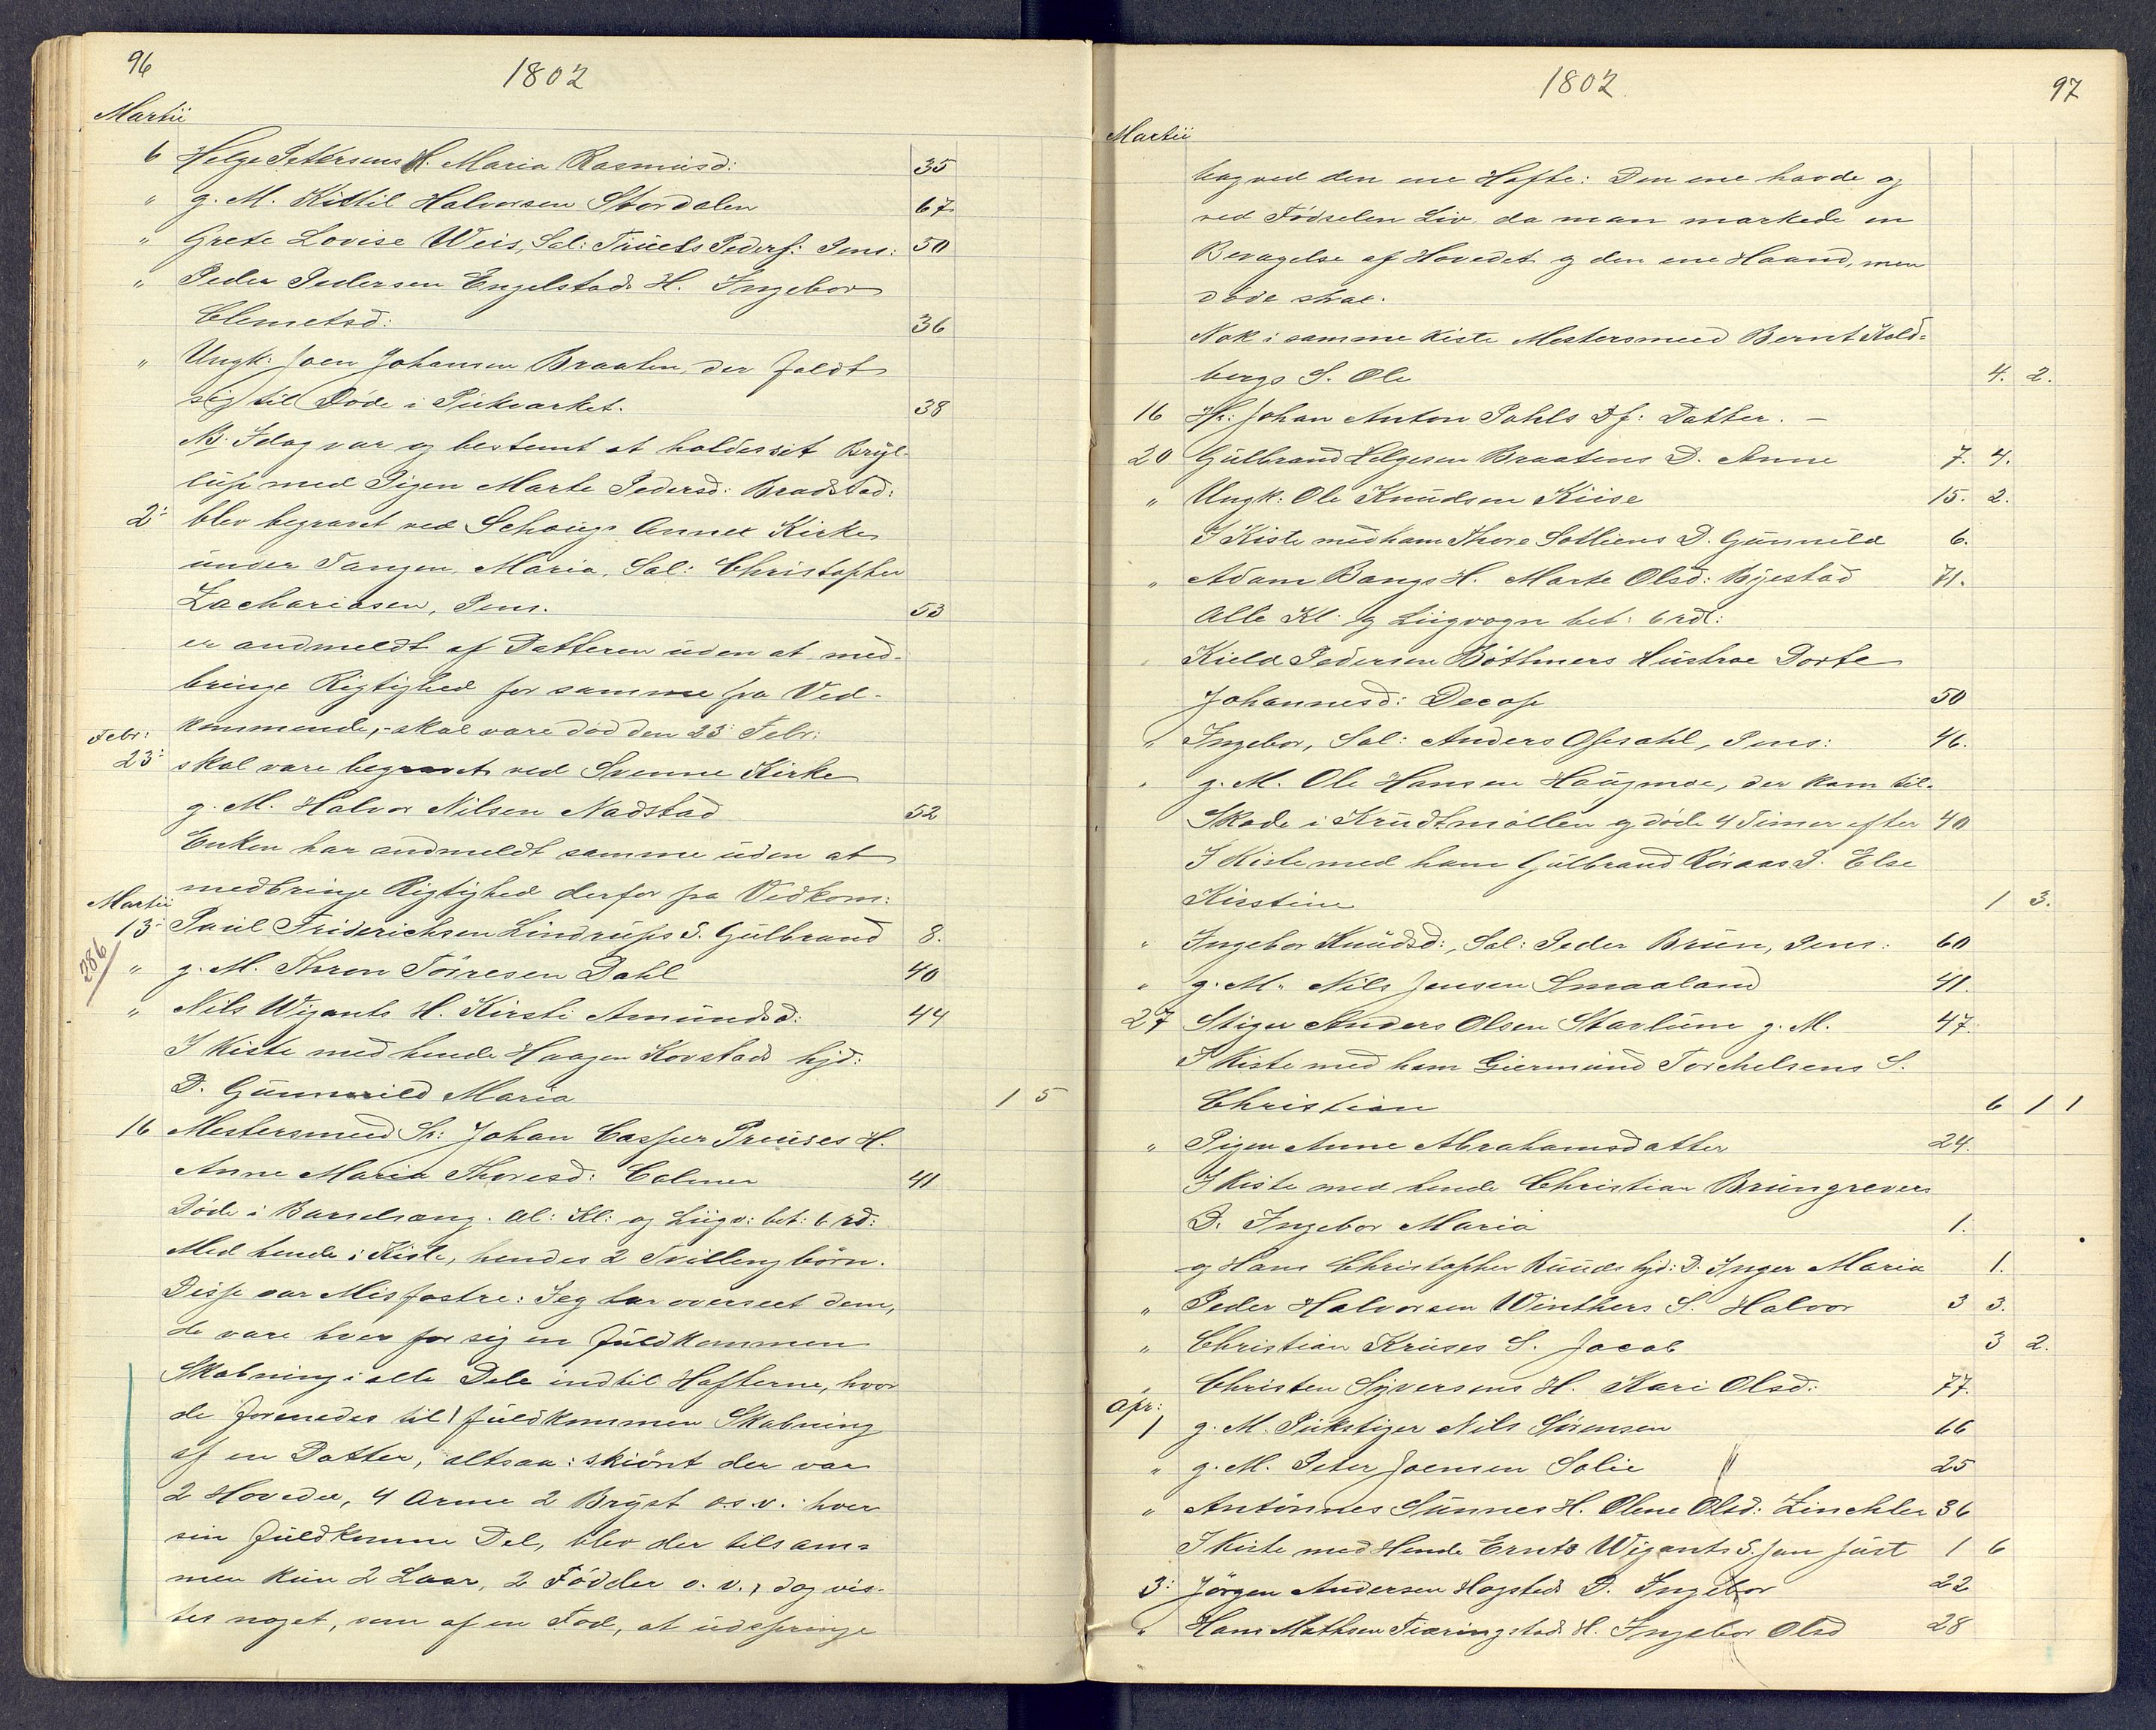 96
1802
Martii
6 Helge Petersens H. Maria Rasmusd: 35
" g. M. Kittil Halvorsen Stordalen 67
" Grete Lovise Weis, Sal: Truels Pedrs: Pens: 50
" Peder Pedersen Engelstads H. Ingebor
Clemetsd: 36
" Ungk: Joen Johansen Braaten, der faldt
sig til Döde i Pukværket. 38
NB. Idag var og bestemt at holde sit Bryl-
lup med Pigen Marte Pedersd: Bradstad:
2: blev begravet ved Schougs Annex Kirke
under Tangen, Maria, Sal: Christopher
Zachariasen, Pens. 53
er andmeldt af Datteren uden at med-
bringe Rigtighed for samme fra Ved-
kommende,- skal være död den 23: Febr:
Febr:
23: skal være begravet ved Svenne Kirke
g. M. Halvor Nilsen Nadstad 52
Enken har andmeldt samme uden at
medbringe Rigtighed derfor fra Vedkom:
Martii
13: Paul Friderichsen Lindrups S. Gulbrand 8.
286
" g. M. Thron Töiresen Dahl 40
" Nils Wigants H. Kirsti Amundsd: 44
I Kiste med hende Haagen Kovstads hjd:
D. Gunnild Maria 1 5
16 Mestersmed Sr: Johan Casper Preuses H.
Anne Maria Thoresd: Colmer 41
Döde i Barselsæng. Al: Kl: og Liigv: bet: 6 rd:
Med hende i Kiste, hendes 2 Tvillengbörn.
Disse var Misfostre: Jeg har overseet dem,
de vare hver for sig en fuldkommen
Skabning i alle Dele indtil Hofterne, hvor
de forenedes til 1 fuldkommen Skabning
af en Datter, altsaa: skiönt der var
2 Hoveder, 4 Arme 2 Bryst o.s.v. hver
sin fuldkomne Del, blev der tilsam=
men kun 2 Laar, 2 Födder o. v., dog vis-
tes noget, som af en Fod, at udspringe
1802
97
Martii
bag ved den ene Hofte: Den ene havde og
ved Födselen Liv da man mærkede en
Bevægelse af Hovedet og den ene Haand, men
döde strax.
Nok i samme Kiste Mestersmed Bernt Kold=
bergs S. Ole 4. 2.
16 Hr: Johan Anton Pahls Df: Datter. —
20 Gulbrand Helgesen Braatens D. Anne 7. 4.
" Ungk: Ole Knudsen Kiise 15. 2.
I Kiste med ham Thore Sotliens D. Gunnild 6.
" Adam Bangs H. Marte Olsd: Byestad 71.
Alle Kl: og Liigvogn bet: 6 rdl:
" Kield Pedersen Böthmers Hustroe Dorte
Johannesd: Decop 50
" Ingebor, Sal: Anders Opsahl, Pens: 46.
" g. M. Ole Hansen Haugmoe, der kom til-
Skade i Krudtmöllen og döde 4 Timer efter 40
I Kiste med ham Gulbrand Röraas D. Else
Kirstine 1 3.
" Ingebor Knudsd:, Sal: Peder Brun, Pens: 60
" g. M. Nils Jensen Smaaland 41.
27 Stiger Anders Olsen Starlum g. M. 47.
I Kiste med ham Giermund Torchelsens S.
Christian 6 1 1
" Pigen Anne Abrahamsdatter 24.
I Kiste med hende Christian Brungrevers
D. Ingebor Maria 1.
og Hans Christopher Ruuds hjd: D. Inger Maria 1.
" Peder Halvorsen Winthers S. Halvor 3 3.
" Christian Kruses S. Jacob 3 2.
" Christen Syversens H. Kari Olsd: 77.
Apr:
1 g. M. Pukstiger Nils Sörensen 66
" g. M. Peter Joensen Solie 25
" Antönnes Sunnes H. Olene Olsd: Zinchler 36
I Kiste med Hende Ernts Wigants S. Jan Just 1 6
3: Jörgen Andersen Hogsteds D. Ingebor 22
" Hans Mathsen Tiæringstads H. Ingebor Olsd 28